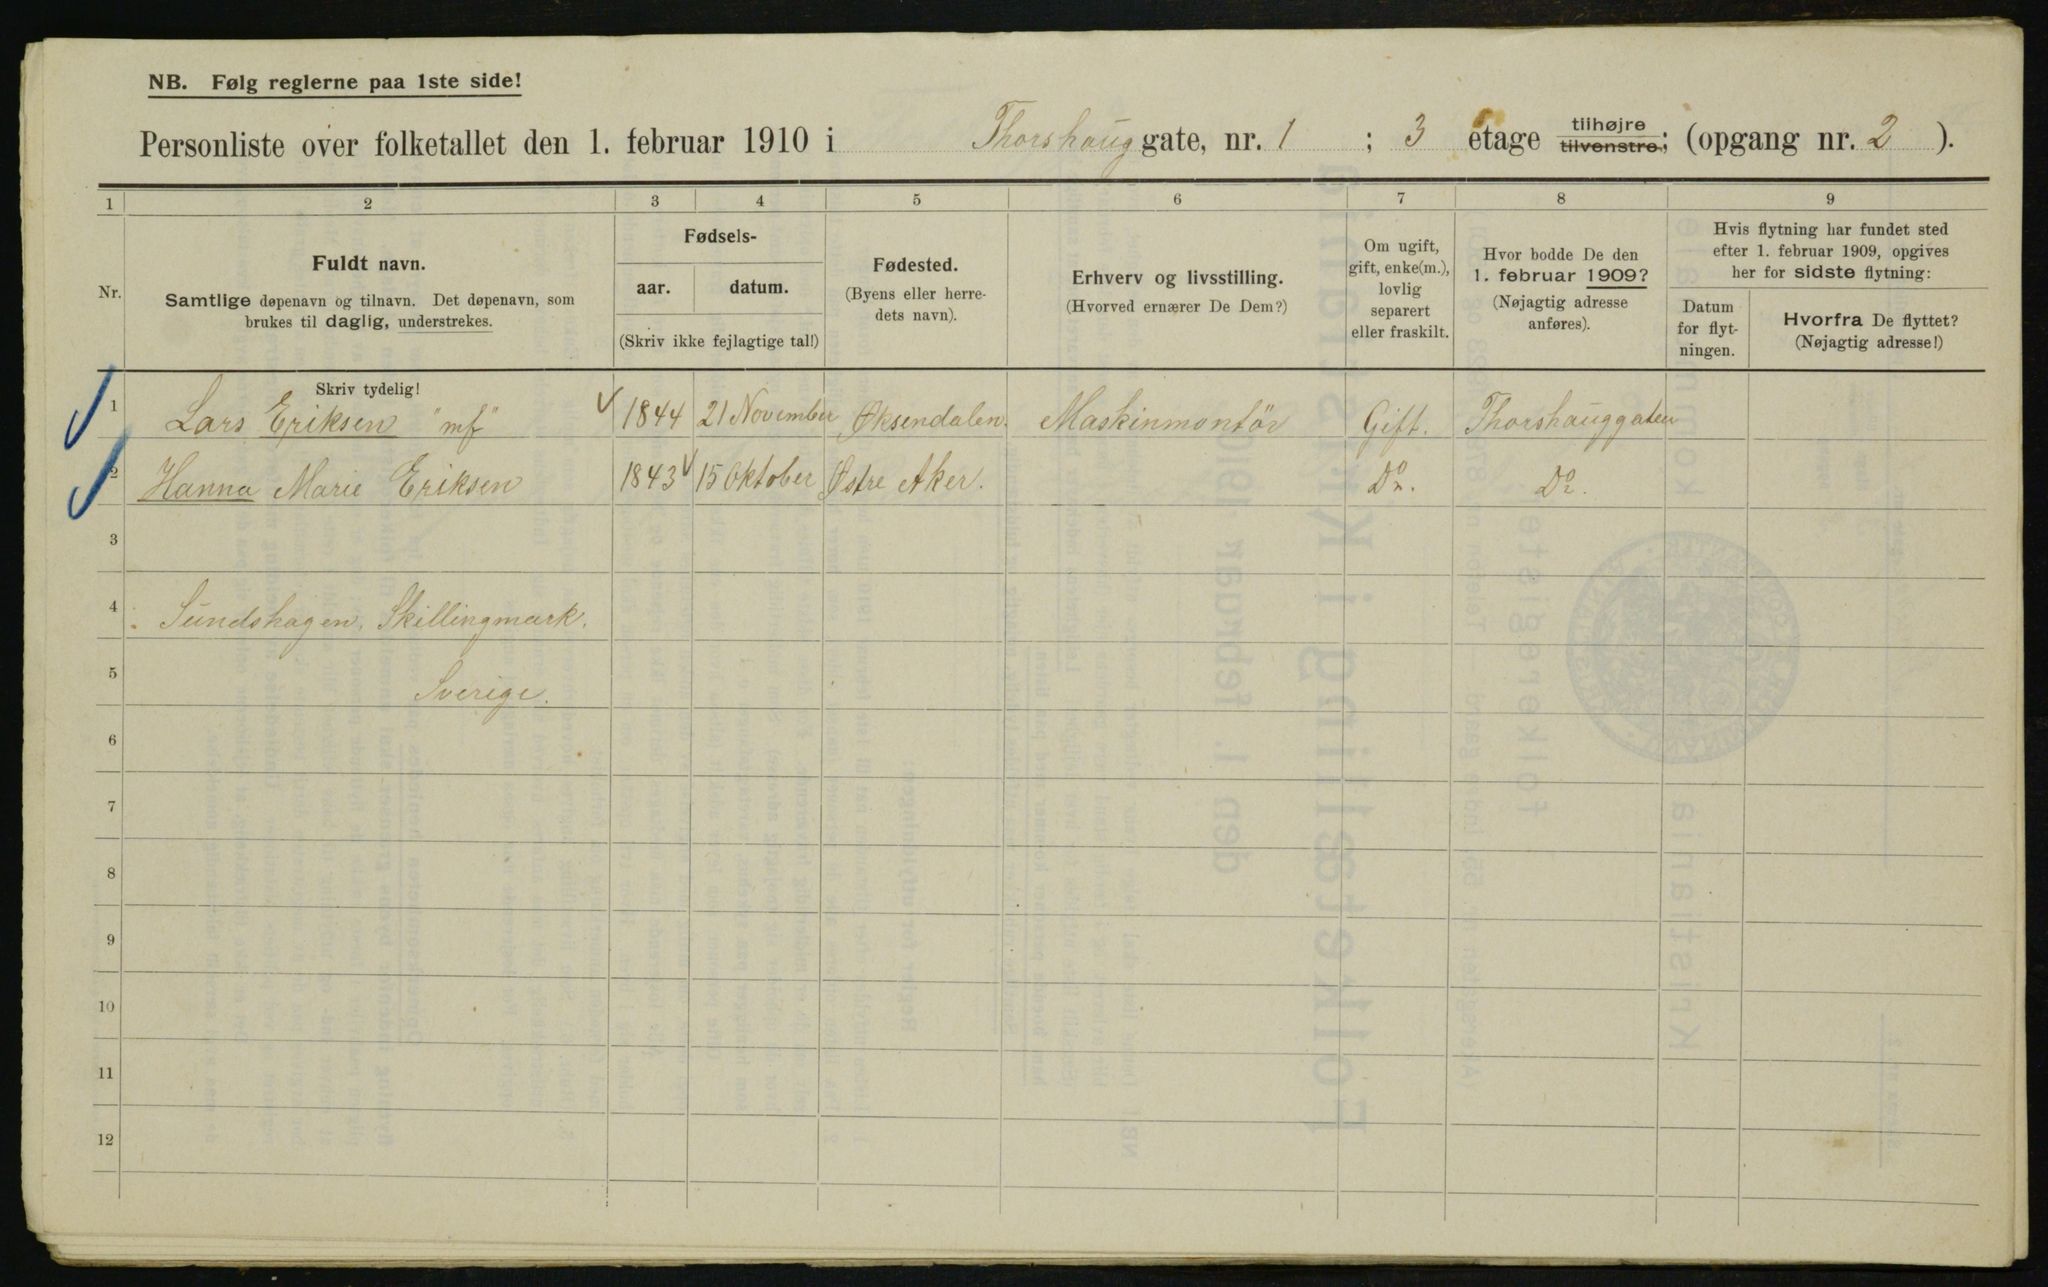 NB. Følg reglerne paa 1ste side!
Personliste over folketallet den 1. februar 1910 i Thorshaug gate, nr. 1 ; 3 etage tilhøjre tilvenstre; (opgang nr. 2 ).
1 2 3 4 5 6 7 8 9
Nr.
Fuldt navn.
Samtlige døpenavn og tilnavn. Det døpenavn, som
brukes til daglig, understrekes.
Skriv tydelig!
Fødsels-
aar. datum.
(Skriv ikke fejlagtige tal!)
Fødested.
(Byens eller herre-
dets navn).
Erhverv og livsstilling.
(Hvorved ernærer De Dem?)
Om ugift,
gift, enke(m.),
lovlig
separert
eller fraskilt.
Hvor bodde De den
1. februar 1909?
(Nøjagtig adresse
anføres).
Hvis flytning har fundet sted
efter 1. februar 1909, opgives
her for sidste flytning:
Datum
for flyt-
ningen.
Hvorfra De flyttet?
(Nøjagtig adresse!)
1 Lars Eriksen "mf" 1844 21 November Øksendalen. Maskinmontör Gift. Thorshauggaten
2 Hanna Marie Eriksen 1843 15 Oktober Østre Aker. Do. Do.
3
4 Sundshagen, Skillingmark.
5 Sverige.
6
7
8
9
10
11
12